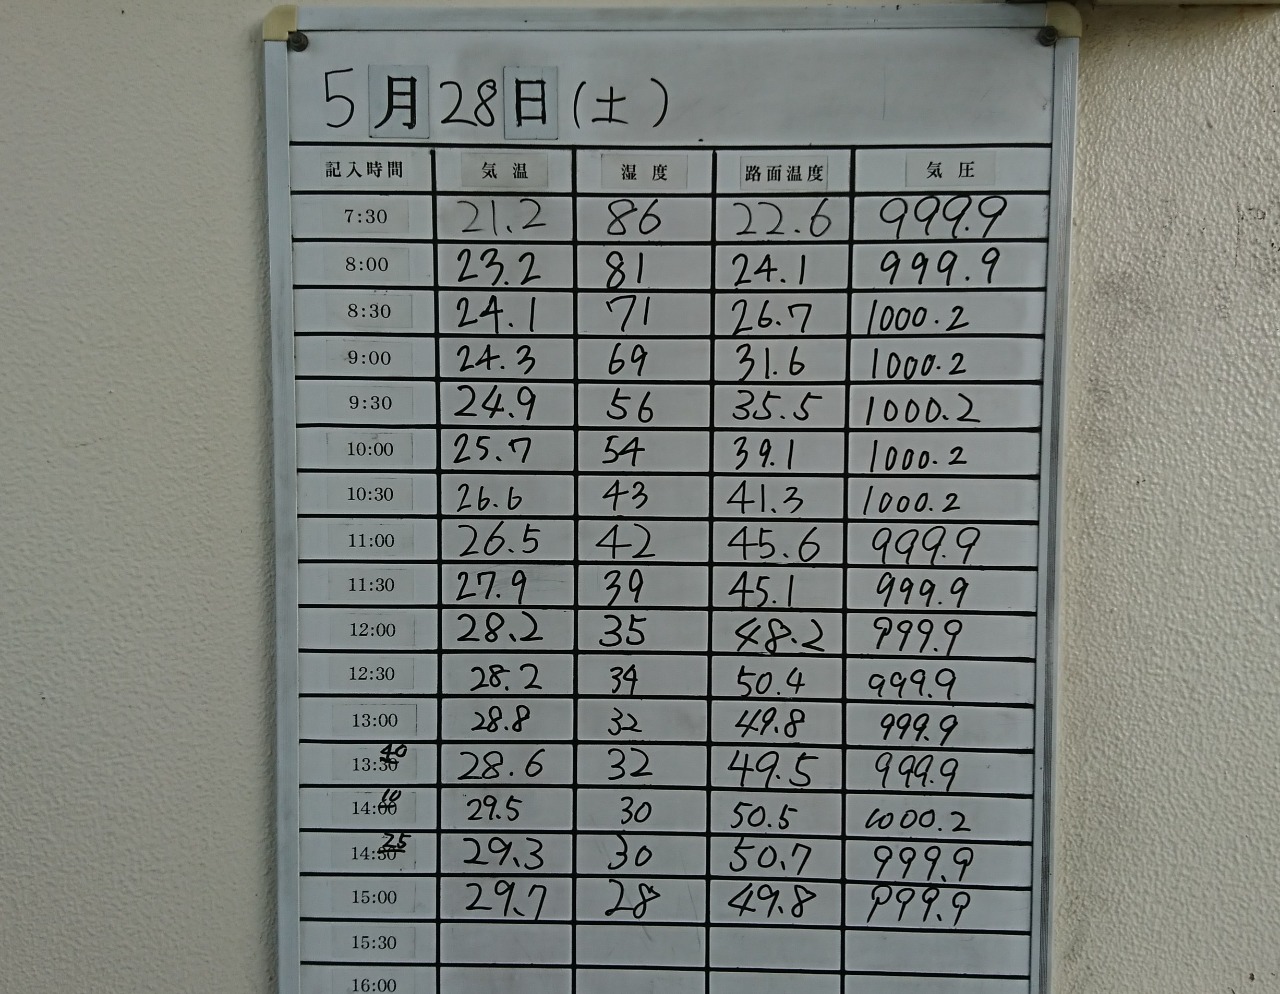 5月28日(土)
記入時間 気温 湿度 路面温度 気圧
7:30 21.2 86 22.6 999.9
8:00 23.2 81 24.1 999.9
8:30 24.1 71 26.7 1000.2
9:00 24.3 69 31.6 1000.2
9:30 24.9 56 35.5 1000.2
10:00 25.7 54 39.1 1000.2
10:30 26.6 43 41.3 1000.2
11:00 26.5 42 45.6 999.9
11:30 27.9 39 45.1 999.9
12:00 28.2 35 48.2 999.9
12:30 28.2 34 50.4 999.9
13:00 28.8 32 49.8 999.9
40
13:30 28.6 32 49.5 999.9
10
14:00 29.5 30 50.5 1000.2
25
14:30 29.3 30 50.7 999.9
15:00 29.7 28 49.8 999.9
15:30
16:00